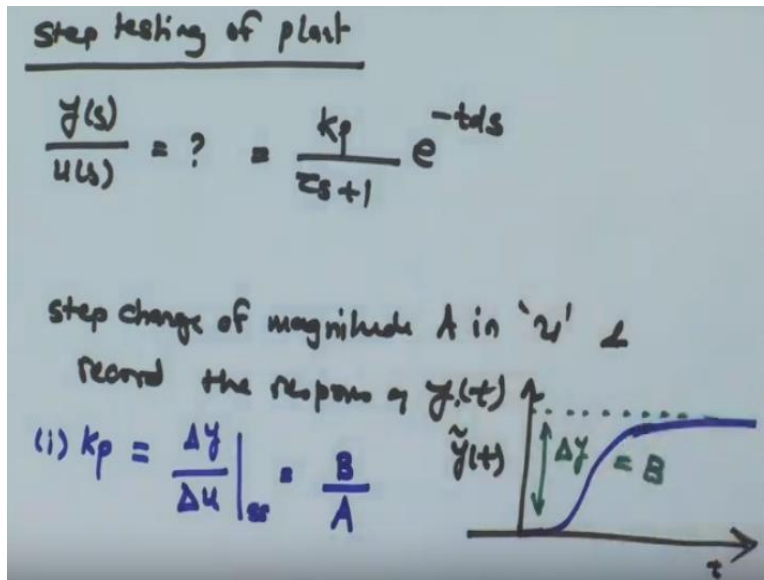 step testing of plant
y(s)/u(s) = ? = kp/(τs+1) e^-tds
step change of magnitude A in 'u' &
record the respons of y(t)
(i) kp = Δy/Δu |ss = B/A
ỹ(t)
Δy = B
t